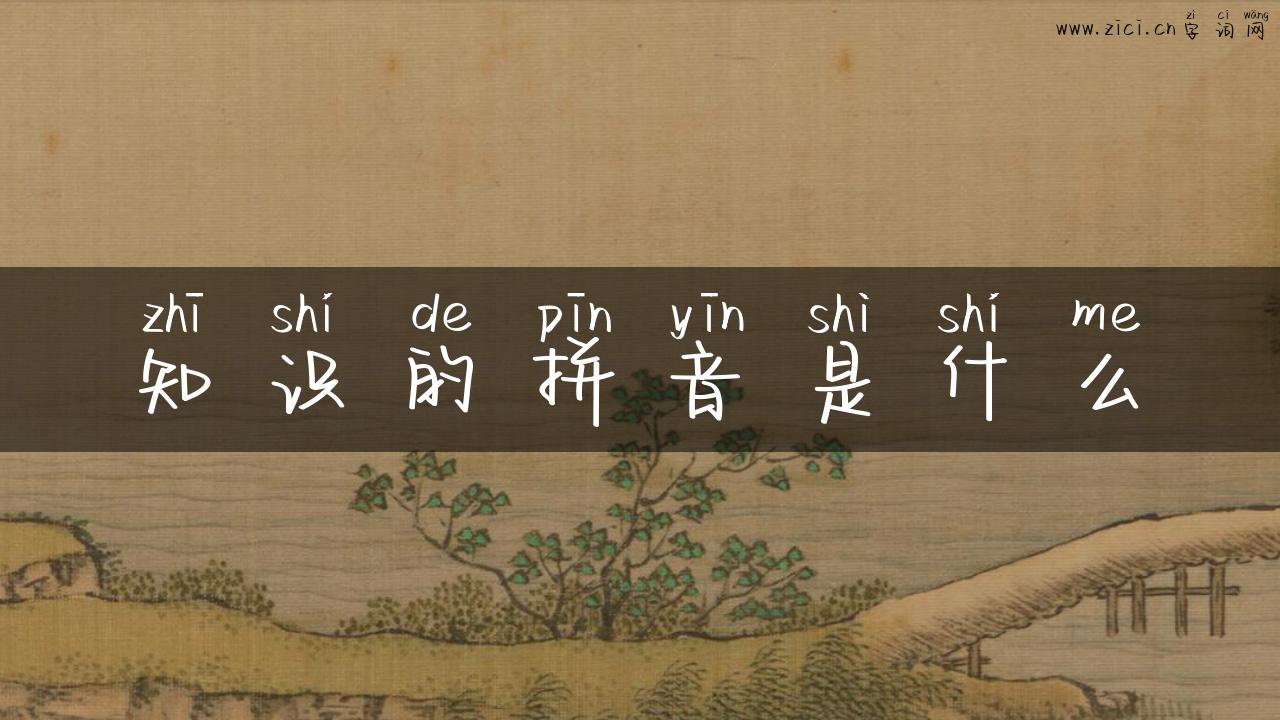 zì cí wǎng
www.zici.cn 字词网
zhī shí de pīn yīn shì shí me
知识的拼音是什么